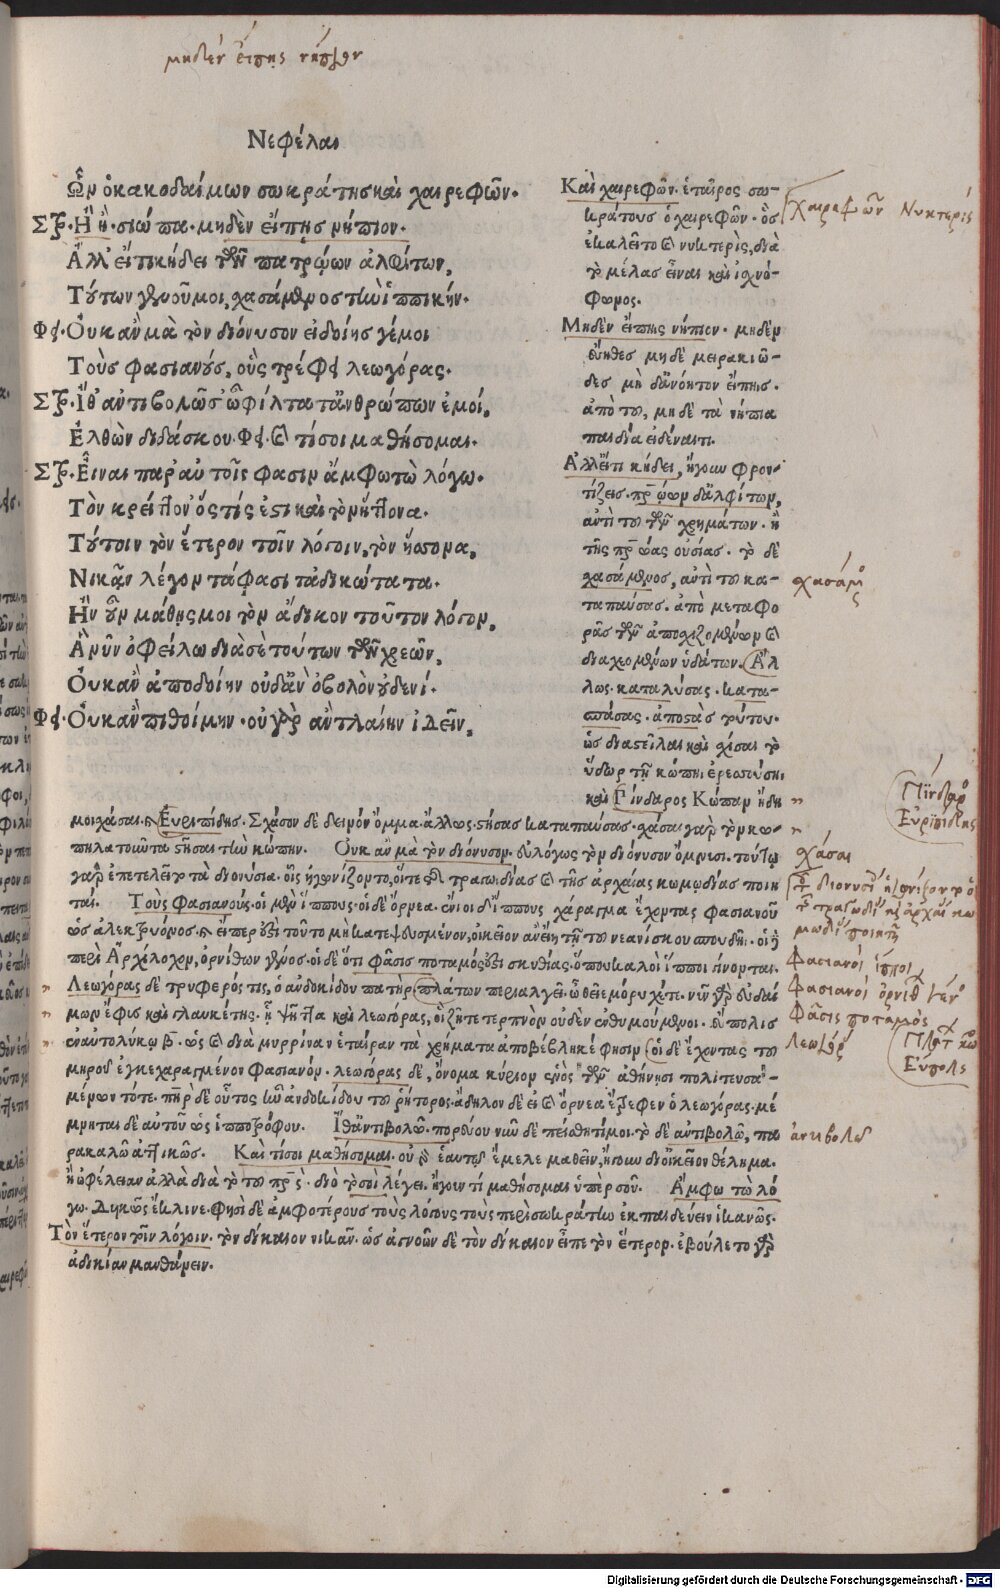 μηδὲν εἴπῃς νήπιον
Νεφέλαι
Ὧν ὁ κακοδαίμων σωκράτης καὶ χαιρεφῶν.
Στρ. Ἢ ἤ. σιώπα. μηδὲν εἴπῃς νήπιον.
Ἀλλ' εἴ τι κήδει τῶν πατρῴων ἀλφίτων,
Τούτων γενοῦ μοι, χασάμενος τὴν ἱππικήν.
Φει. Οὐκ ἂν μὰ τὸν διόνυσον εἰ δοίης γέ μοι
Τοὺς φασιανούς, οὓς τρέφει λεωγόρας.
Στρ. Ἴθ' ἀντιβολῶ σ' ὦ φίλτατ' ἀνθρώπων ἐμοί,
Ἐλθὼν διδάσκου. Φει. καὶ τί σοι μαθήσομαι.
Στρ. Εἶναι παρ' αὐτοῖς φασὶν ἄμφω τὼ λόγω.
Τὸν κρείττον' ὅς τίς ἐστι καὶ τὸν ἥττονα.
Τούτοιν τὸν ἕτερον τοῖν λόγοιν, τὸν ἥσσονα,
Νικᾷν λέγοντά φασι τἀδικώτατα.
Ἢν οὖν μάθῃς μοι τὸν ἄδικον τοῦτον λόγον,
Ἃ νῦν ὀφείλω διὰ σὲ τούτων τῶν χρεῶν,
Οὐκ ἂν ἀποδοίην οὐδ' ἂν ὀβολὸν οὐδενί.
Φει. Οὐκ ἂν πιθοίμην. οὐ γὰρ ἂν τλαίην ἰδεῖν,
Καὶ χαιρεφῶν. ἑταῖρος σω-
κράτους ὁ χαιρεφῶν. ὃς
ἐκαλεῖτο καὶ νυκτερὶς, διὰ
τὸ μέλας εἶναι καὶ ἰσχνό-
φωνος.
Μηδὲν εἴπῃς νήπιον. μηδὲν
εὔηθες μηδὲ μειρακιῶ-
δες μὴ δ' ἀνόητον εἴπῃς.
ἀπὸ τοῦ, μηδὲ τὰ νήπια
παιδία εἰδέναι τι.
Ἀλλ' εἴ τι κήδει, ἤγουν φρον-
τίζεις. πατρῴων δ' ἀλφίτων,
ἀντὶ τοῦ τῶν χρημάτων. ἢ
τῆς πατρῴας οὐσίας. τὸ δὲ
χασάμενος, ἀντὶ τοῦ κα-
ταπαύσας. ἀπὸ μεταφο
ρᾶς τῶν ἀποσχιζομένων καὶ
διαχομένων ὑδάτων. Ἄλ
λως. καταλύσας. κατα-
σπάσας. ἀποστὰς τούτου.
ὡς διαστεῖλαι καὶ σχίσαι τὸ
ὕδωρ τῇ κώπῃ ἐρεσσούσῃ
καὶ Πίνδαρος Κώπαν ἤδη
μοι χάσαι. καὶ Εὐριπίδης. Σχάσον δὲ δεινὸν ὄμμα. ἄλλως. στήσας καταπαύσας. χάσαι γὰρ τὸν κω-
πηλατοῦντα στῆσαι τὴν κώπην. Οὐκ ἂν μὰ τὸν διόνυσον. εὐλόγως τὸν διόνυσον ὄμνυσι. τούτῳ
γὰρ ἐπετελεῖτο τὰ διονύσια. οἷς ἠγωνίζοντο, οἵ τε τῆς τραγῳδίας καὶ τῆς ἀρχαίας κωμῳδίας ποιη
ταί. Τοὺς Φασιανούς. οἱ μὲν ἵππους. οἱ δὲ ὄρνεα. ἔνιοι δ' ἵππους χάραγμα ἔχοντας φασιανοῦ
ὡς ἀλεκτρυόνος. καὶ εἴπερ ἐστὶ τοῦτο μὴ κατεψευσμένον, οἰκεῖον ἂν εἴη τῇ τοῦ νεανίσκου σπουδῇ. οἱ δὲ
περὶ Ἀρχίλοχον, ὀρνίθων γένος. οἱ δὲ ὅτι φᾶσις ποταμός ἐστι σκυθίας. ὅπου καλοὶ ἵπποι γίνονται.
Λεωγόρας δὲ τρυφερός τις, ὁ ἀνδοκίδου πατήρ. πλάτων περιαλγεῖ. ὦ θεῖε μόρυχε. νῦν γὰρ εὐδαί
μων ἔφυς καὶ γλαυκέτης. ἡ ψῆττα καὶ λεωγόρας, οἳ ζῆτε τερπνῶς οὐδὲν ἐνθυμούμενοι. εὔπολις
ἐν αὐτολύκῳ β. ὡς καὶ διὰ μυρρίναν ἑταίραν τὰ χρήματα ἀποβέβληκέ φησιν. οἱ δὲ ἔχοντας τοῦ
μηροῦ ἐγκεχαραγμένον φασιανόν. λεωγόρας δὲ, ὄνομα κύριον ἑνὸς τῶν ἀθήνησι πολιτευσα-
μένων τότε. πατὴρ δὲ οὗτος ἦν ἀνδοκίδου τοῦ ῥήτορος. ἄδηλον δὲ εἰ καὶ ὄρνεα ἔτρεφεν ὁ λεωγόρας. μέ
μνηται δὲ αὐτοῦ ὡς ἱπποτρόφου. Ἴθ' ἀντιβολῶ. πορεύου νῦν δὲ πείσθητί μοι. τὸ δὲ ἀντιβολῶ, πα
ρακαλῶ ἀττικῶς. Καὶ τί σοι μαθήσομαι. οὐ γὰρ ἑαυτῷ ἔμελε μαθεῖν, ἤγουν δι' οἰκεῖον θέλημα.
ἢ ὠφέλειαν ἀλλὰ διὰ τὸ τοῦ πατρός. διὸ τὸ σοὶ λέγει. ἤγουν τί μαθήσομαι ὑπὲρ σοῦ. Ἄμφω τὼ λό
γω. Δυϊκῶς ἔκλινε. Φησὶ δὲ ἀμφοτέρους τοὺς λόγους τοὺς περὶ σωκράτην ἐκπαιδεύειν ἱκανῶς.
Τὸν ἕτερον τοῖν λόγοιν. τὸν δίκαιον νικᾶν. ὡς ἀγνοῶν δὲ τὸν δίκαιον εἶπε τὸν ἕτερον. ἐβούλετο γὰρ
ἀδικίαν μανθάνειν.
Χαιρεφῶν Νυκτερίς
χασάμενος
Πίνδαρος
Εὐριπίδης
χάσαι
Φασιανοὶ ἵπποι
Φασιανοὶ ὀρνίθων γένος
Φᾶσις ποταμὸς
Λεωγόρας
Εὔπολις
ἀντιβολῶ
Digitalisierung gefördert durch die Deutsche Forschungsgemeinschaft - DFG